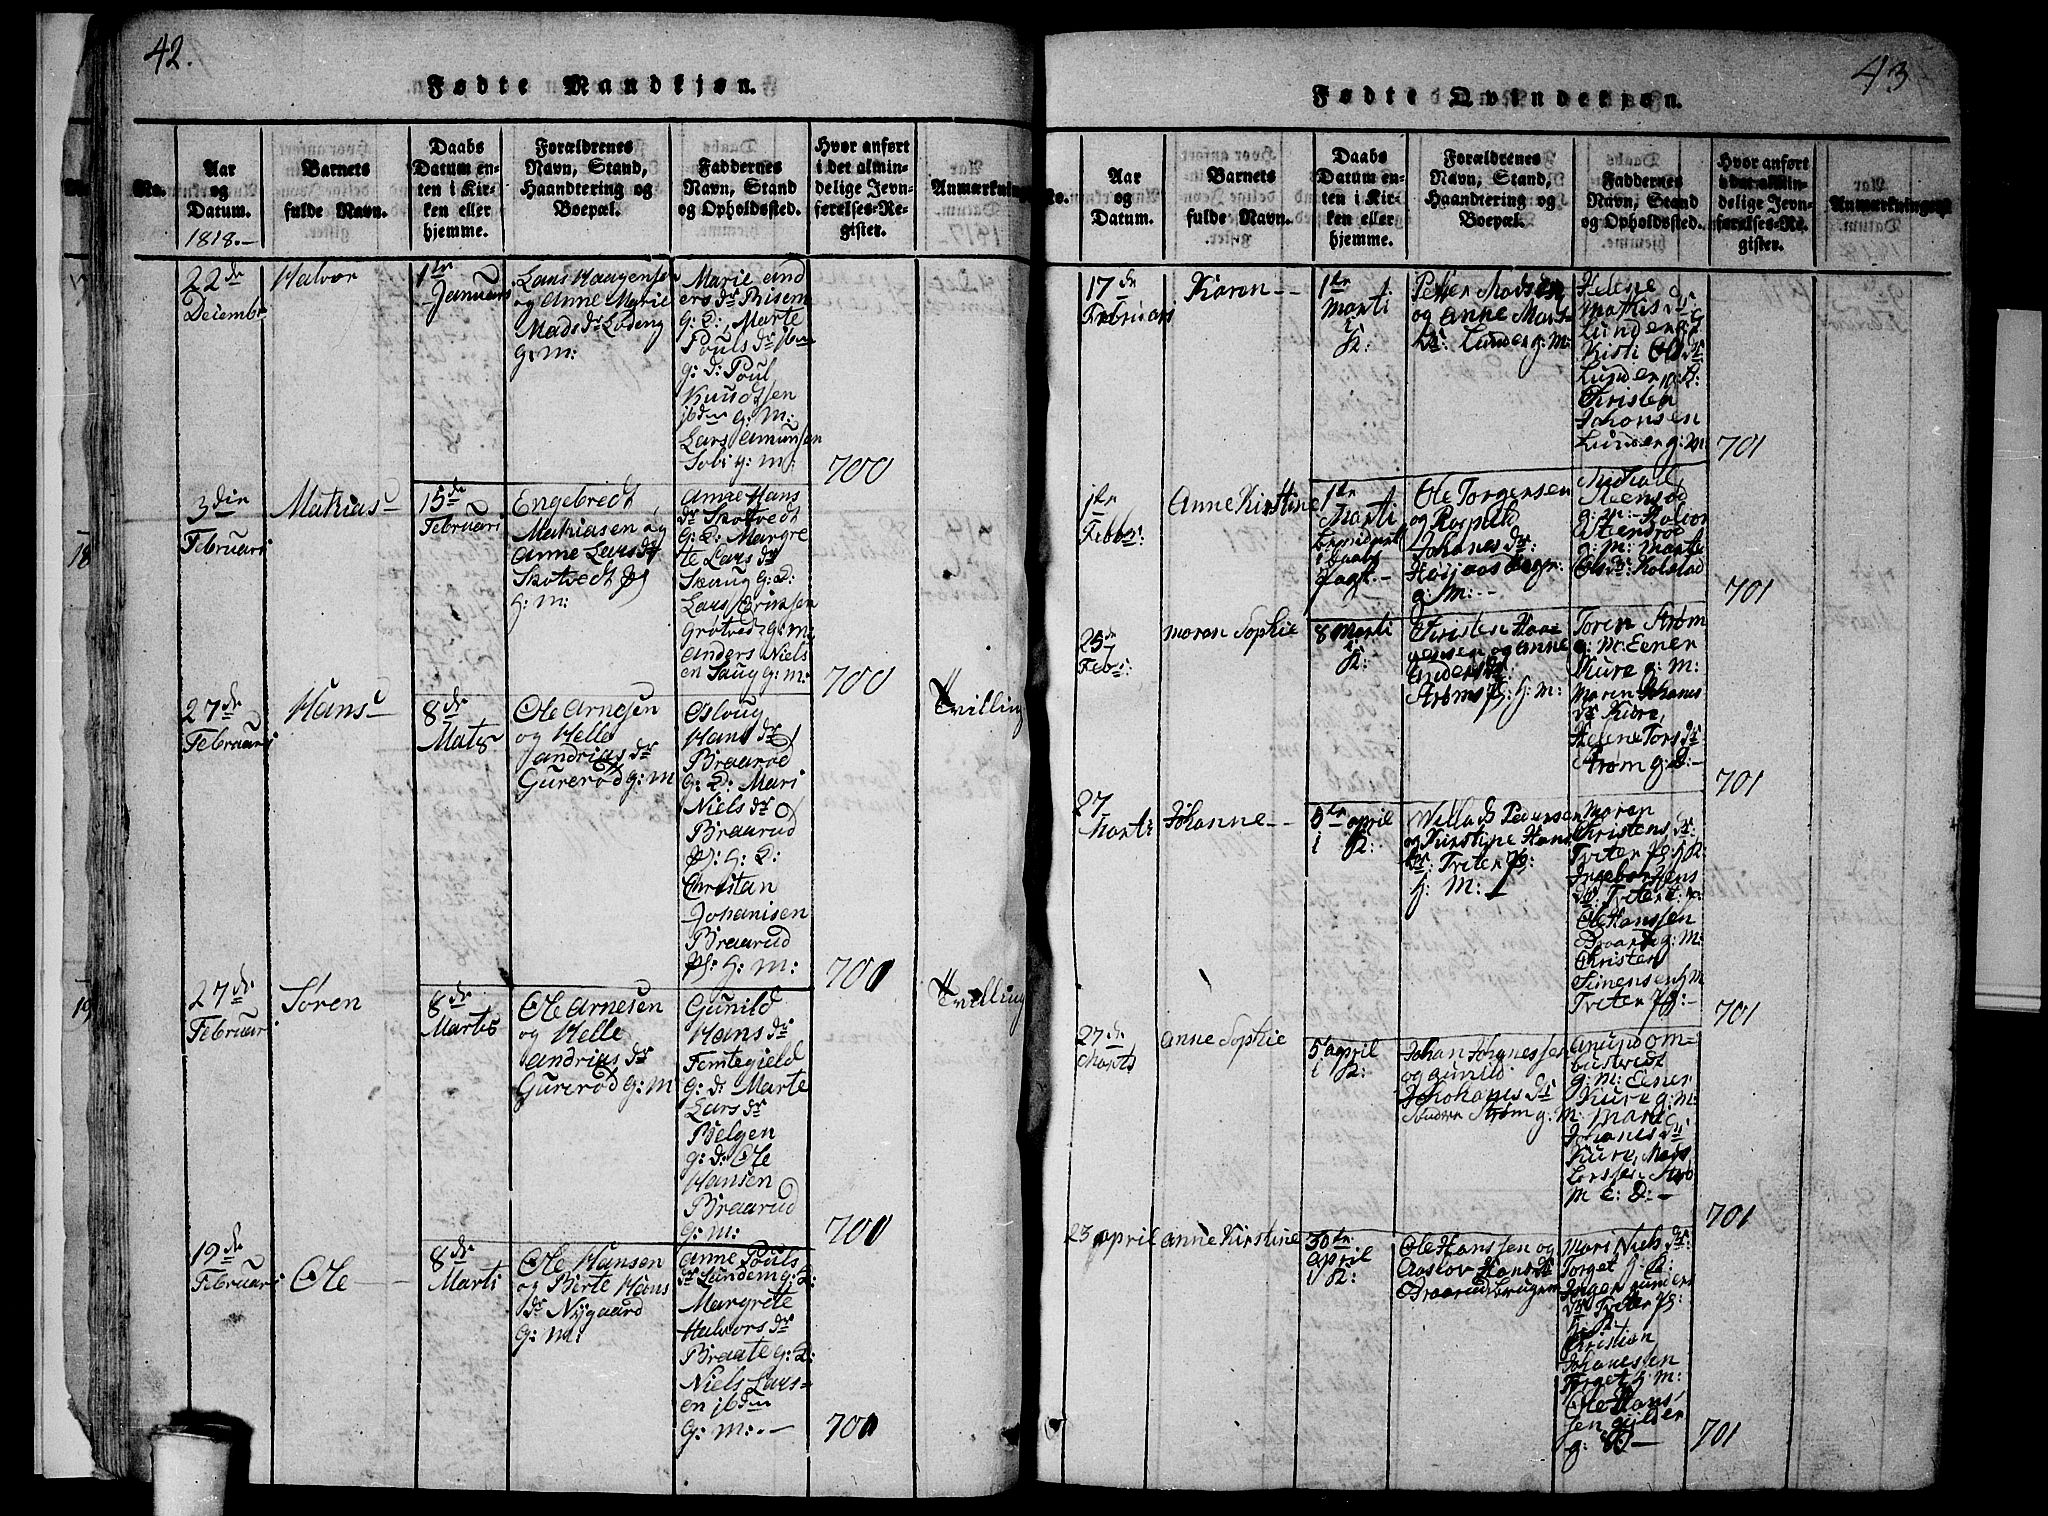 42.
Fødte Mandkjøn.
No.
Aar
og
Datum.
1818.-
Barnets
fulde Navn.
Daabs
Datum en-
ten i Kir-
ken eller
hjemme.
Forældrenes
Navn, Stand,
Haandtering og
Boepæl.
Faddernes
Navn, Stand
og Opholdssted.
Hvor anført
i det almin-
delige Jevn-
førelses-Re-
gister.
Anmærkning
22de
Decembr
Halvor
1te
Januari
Lars Haagensen
og Anne Marie
Mads dr Lødeng
g: M:
Marie And
ers dr Bisem
g: D: Marte
Pouls dr ibdm
g: d: Poul
Knudssen
ibden g: m:
Lars Amunsen
Sobi g: m:
700
3die
Februari
Mathias
15de
Februari
Engebredt
Mathiasen og
Anne Lars dr
Skotvedt Pl
g: m:
Anne Hans
dr Skotvedt
g: D: Margre
te Lars dr
Saug g: D:
Lars Ericksen
Grøtvedt g: m:
Anders Niels
en Saug g: m:
700
27de
Februari
Hans
8de
Martz
Ole Arnesen
og Helle
Andrias dr
Gurerød g: m
Oslaug
Hans dr
Braarød
g: D: Mari
Niels dr
Braarud
Pl: g: D:
Christan
Johanisen
Braarud
Pl: g: m:
700
Tvilling
27de
Februari
Søren
8de
Martis
Ole Arnesen
og Helle
Andrias dr
Gurerød g: m
Gunild
Hans dr
Femtegield
g: d: Marte
Lars dr
Bielgen
g: d: Ole
Hansen
Braarud
g: m:
700
Tvilling
19de
Februari
Ole
8de
Marti
Ole Hansen
og Berte Hans
dr Nygaard
g: m:
Anne Pouls
dr Sundem g: D:
Margrete
Halvors dr
Braate g: D:
Niels Lars-
en ibden
g: m: -
700
43
Fødte Qvindekjøn.
No.
Aar
og
Datum.
Barnets
fulde Navn.
Daabs
Datum en-
ten i Kir-
ken eller
hjemme.
Forældrenes
Navn, Stand,
Haandtering og
Boepæl.
Faddernes
Navn, Stand
og Opholdssted.
Hvor anført
i det almin-
delige Jevn-
førelses-Re-
gister.
Anmærkninger
17de
Februari
Karen -
1te
Marti
i
K:
Peder Madsen
og Anne Mats
dr: Lunder g: M:
Helene
Mathis dr
Lunder
Kisti Ols dr
Lunder
Kristen
Johonsen
Lunder g: M
701
1te
Febr:
Anne Kirstine
1te
Marti
i Daabs
pagt. -
Ole Torgensen
og
Johanes dr:
g: M: -
Steensrød
g: M: Halvor
Steensrøe
g: M: Marte
Ols dr: Kolstad
701
25de
Febr:
Maren Sophie
8 Marti
i
K:
Kristen Haa
gensen og Anne
Anders dr
Strøms Pl: g: M:
Toren Strøm
g: M: Ener
Kure g: M:
Maren Johanes
dr Kure,
Helene Tors dr
Strøm g: D: -
701
27
Marti
Johanne -
5te April
i K:
Willads Pedersen
og Kirstine Hans
dr: Tviter Pl:
g: M:
Maren
Christens dr:
Tviter Pl: g: K:
Ingebor Jens
dr: Tviter
Ole Hanssen
Braarde g: M:
Christen
Simensen g M
Tviter Pl: -
701
27de
Marti
Anne Sophie
5 April
i K:
Johan Johanessen
og Gunild
Johanes dr
Søndre Strøm g: M:
Amund Om-
bustvedt
g: M: Ener
Kure g: M:
Maric
Johanes dr:
Kure, Mads
Larssen Strø
m E: D: -
701
23 April
Anne Kirstine
30te
April
i K:
Ole Hanssen og
Aaslov Hans dr
Braarud Bruger
Mari Niels dr:
Torget g: K:
Inger Gunders
dr: Tviter Pl:
g: K:
Christian
Johanessen
Torget g: M:
Ole Hans
sen Gulder
g: -
701